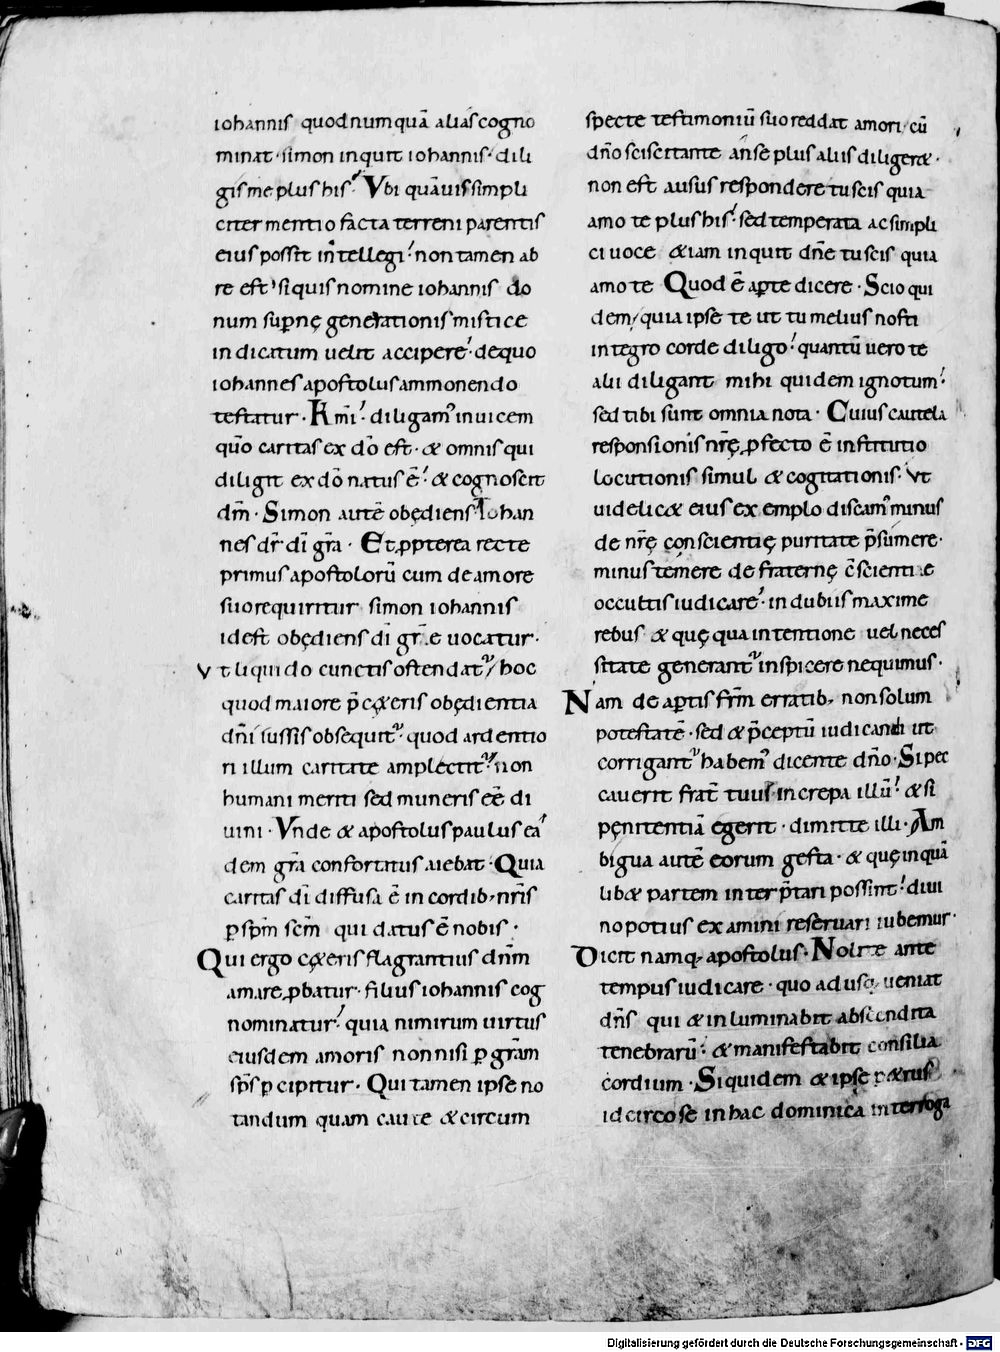 iohannis quod numquā alias cogno
minat · simon inquit iohannis · dili
gis me plus his? Vbi quāuis simpli
citer mentio facta terreni parentis
eius possit intellegi · non tamen ab
re est si quis nomine iohannis do
num sup̄nę generationis mistice
indicatum uelit accipere · de quo
iohannes apostolus ammonendo
testatur · K̄mi · diligam' inuicem
quō caritas ex dō est · & omnis qui
diligit ex dō natus ē · & cognoscit
dm̄ · Simon autē obędiens Iohan
nes dr̄ dī gr̄a · Et ꝓpterea recte
primus apostolorū cum de amore
suo requiritur simon iohannis
id est obędiens dī gr̄ę uocatur ·
Vt liquido cunctis ostendat᷑ hoc
quod maiore p̄ c&eris obędientia
dn̄i iussis obsequit᷑ · quod ardentio
ri illum caritate amplectit᷑ · non
humani meriti sed muneris eē di
uini · Vnde & apostolus paulus ea
dem gr̄a confortatus aiebat · Quia
caritas dī diffusa ē in cordib; nr̄is
ꝑ sp̄m sc̄m qui datus ē nobis ·
Qui ergo c&eris flagrantius dn̄m
amare ꝓbatur · filius iohannis cog
nominatur · quia nimirum uirtus
eiusdem amoris non nisi ꝑ gr̄am
sp̄s ꝑcipitur · Qui tamen ipse no
tandum quam caute & circum
specte testimoniū suo reddat amori · cū
dn̄o sciscitante an se plus aliis diliger& ·
non est ausus respondere tu scis quia
amo te plus his · sed temperata ac simpli
ci uoce &iam inquit dn̄e tu scis quia
amo te Quod ē aꝑte dicere · Scio qui
dem quia ipse te ut tu melius nosti
integro corde diligo · quantū uero te
alii diligant mihi quidem ignotum ·
sed tibi sunt omnia nota · Cuius cautela
responsionis nr̄ę ꝓfecto ē institutio
locutionis simul & cogitationis · Vt
uidelic& eius exemplo discam' minus
de nr̄ę conscientię puritate p̄sumere ·
minus temere de fraternę c̄scientię
occultis iudicare · in dubiis maxime
rebus & quę qua intentione uel neces
sitate generant᷑ inspicere nequimus ·
Nam de aꝑtis fr̄m erratib; non solum
potestatē · sed & p̄ceptū iudicandi ut
corrigant᷑ habem' dicente dn̄o · Si pec
cauerit frat̄ tuus increpa illū · & si
pęnitentiā egerit · dimitte illi · Am
bigua autē eorum gesta · & quę in quā
lib& partem interp̄tari possint · diui
no potius examini reseruari iubemur ·
Dicit namq; apostolus · Nolite ante
tempus iudicare · quo adusq; ueniat
dn̄s qui & inluminabit abscondita
tenebrarū · & manifestabit consilia
cordium · Siquidem & ipse p&rus
idcirco se in hac dominica interroga
Digitalisierung gefördert durch die Deutsche Forschungsgemeinschaft - DFG